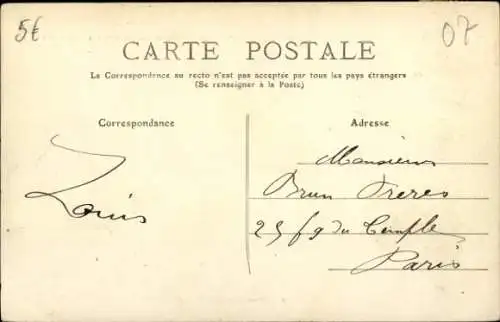 5€
07
CARTE POSTALE
La Correspondance au recto n'est pas acceptée par tous les pays étrangers
(Se renseigner à la Poste)
Correspondance
Adresse
Louis
Monsieur
Brun Freres
25 fg du Temple
Paris